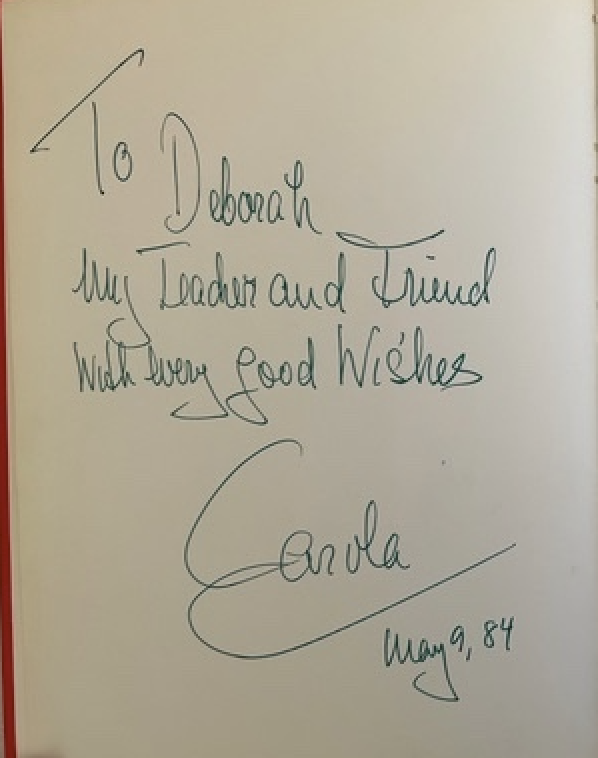 To Deborah
My Teacher and Friend
With every good Wishes
Carola
May 9, 84